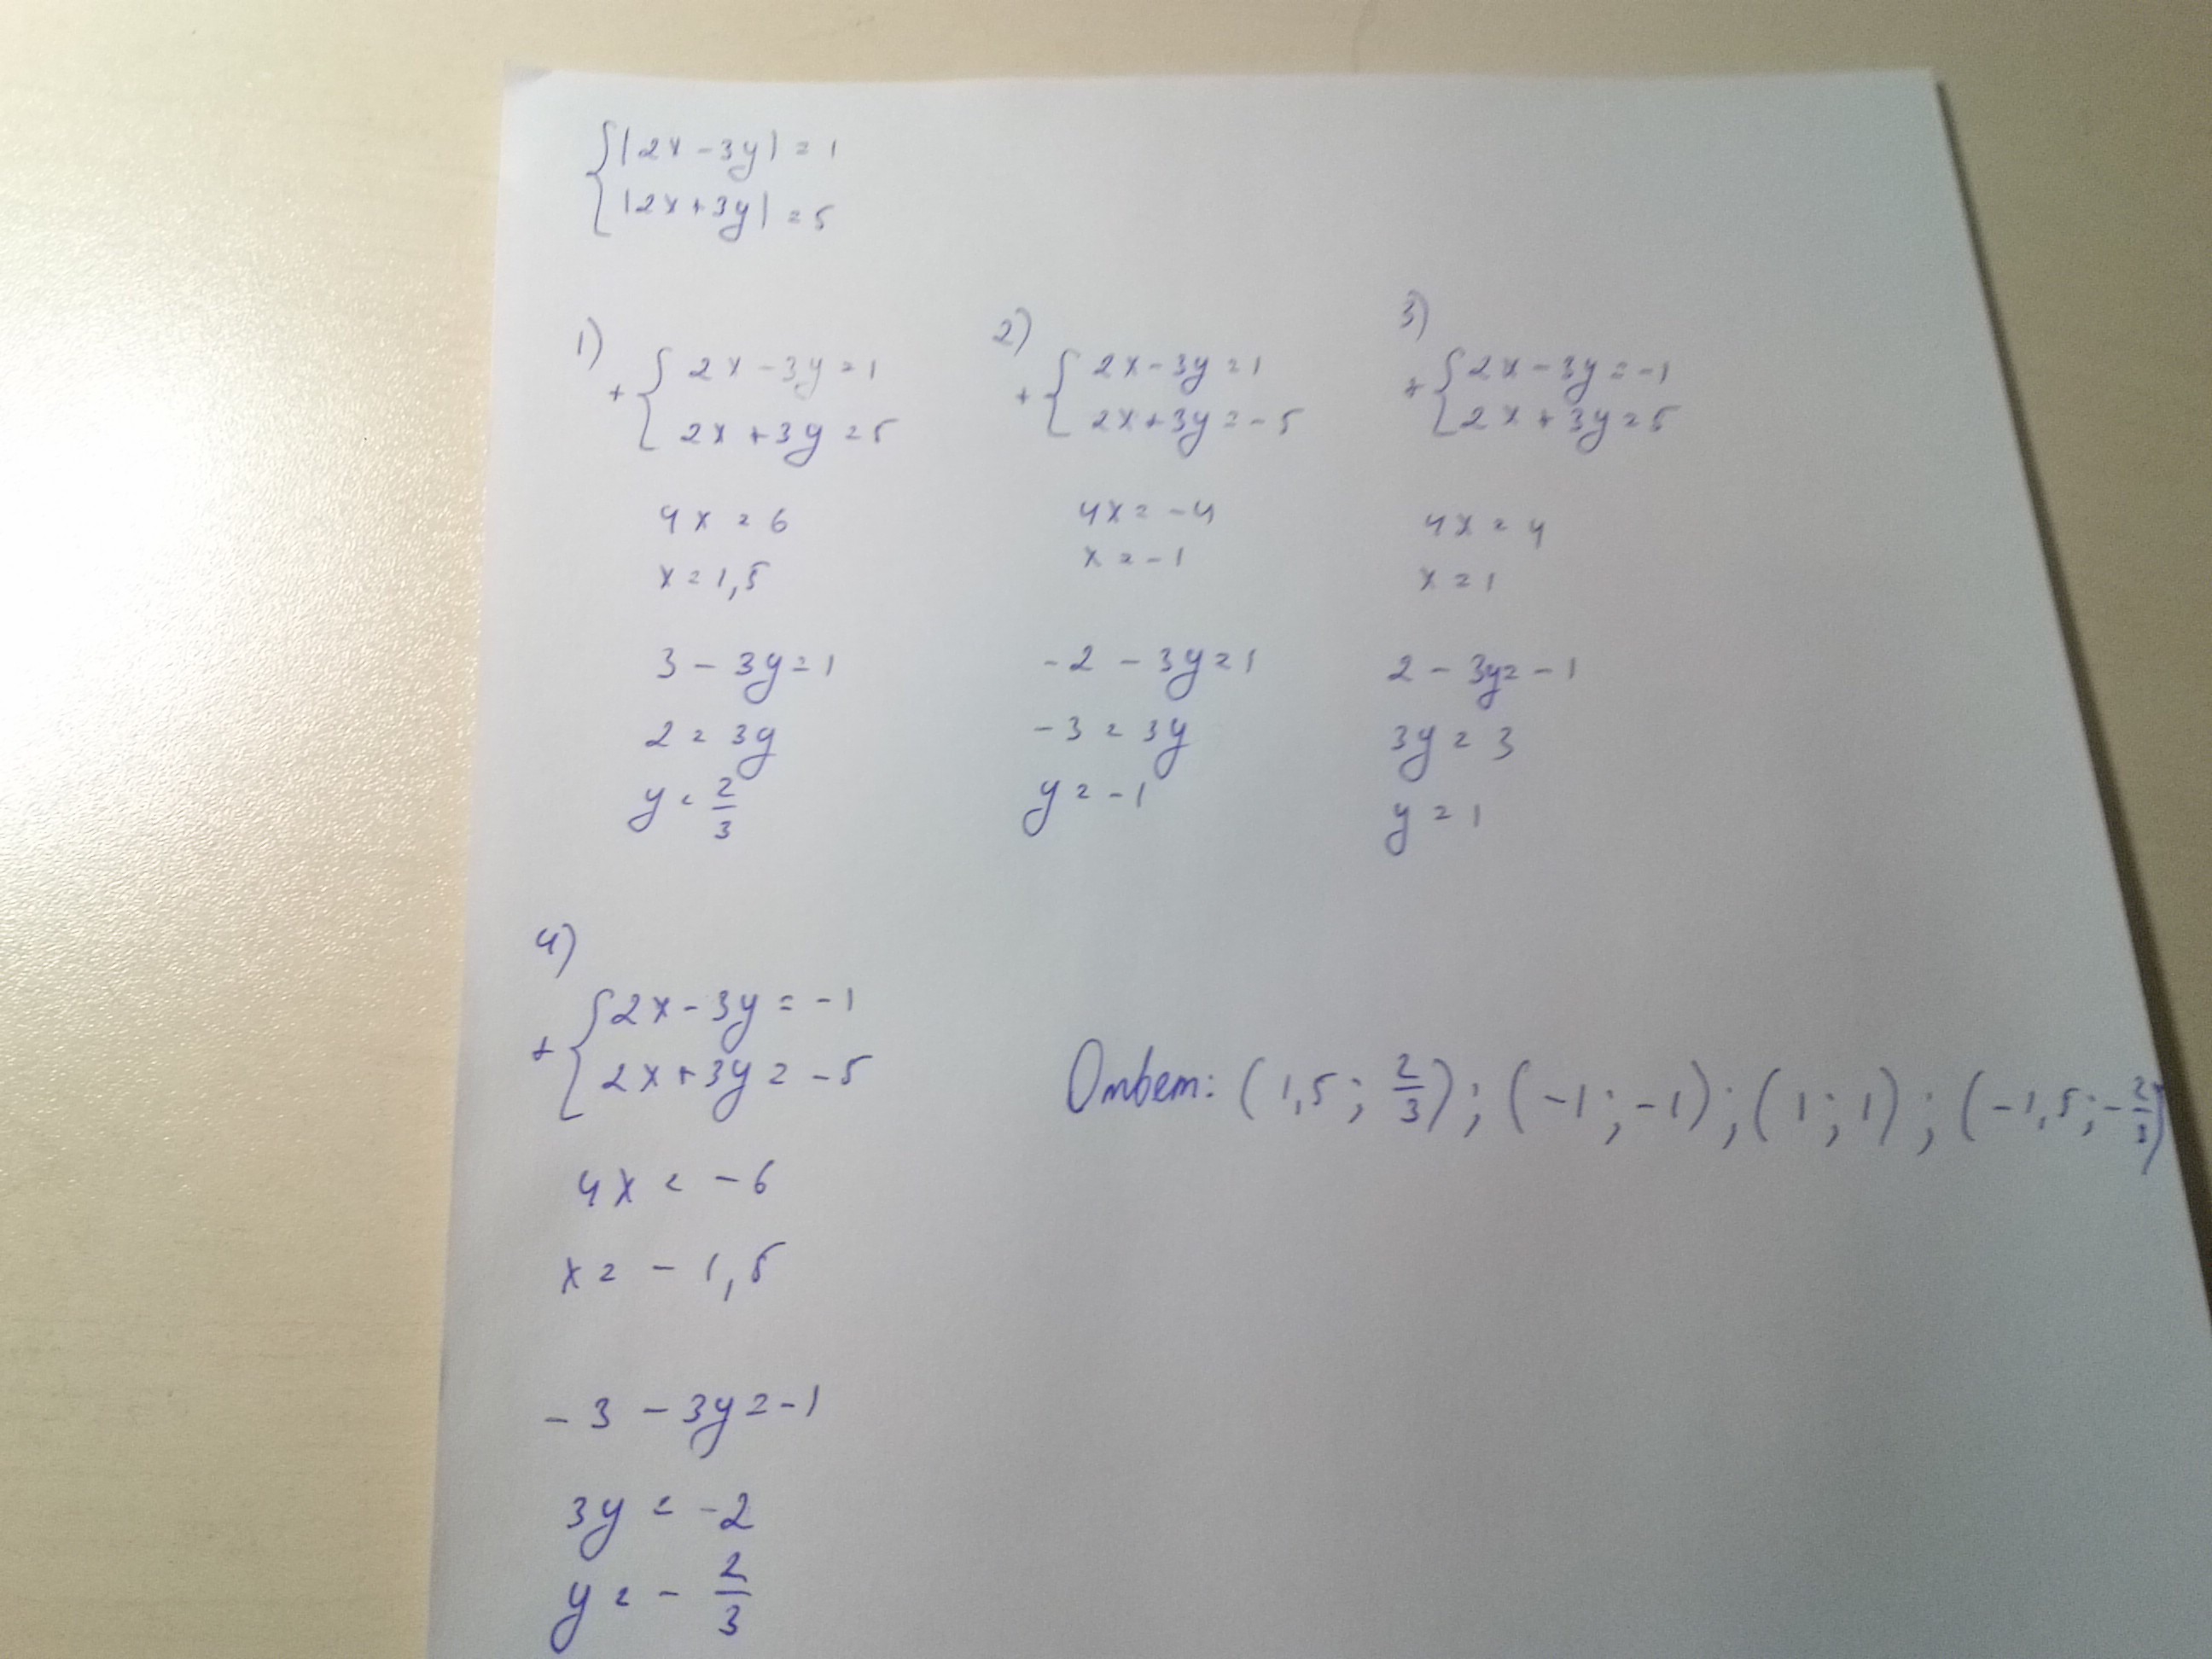 {|2x - 3y| = 1
|2x + 3y| = 5
1)
+ {2x - 3y = 1
2x + 3y = 5
4x = 6
x = 1,5
3 - 3y = 1
2 = 3y
y = 2/3
2)
+ {2x - 3y = 1
2x + 3y = -5
4x = -4
x = -1
-2 - 3y = 1
-3 = 3y
y = -1
3)
+ {2x - 3y = -1
2x + 3y = 5
4x = 4
x = 1
2 - 3y = -1
3y = 3
y = 1
4)
+ {2x - 3y = -1
2x + 3y = -5
4x = -6
x = -1,5
-3 - 3y = -1
3y = -2
y = - 2/3
Ответ: (1,5; 2/3); (-1; -1); (1; 1); (-1,5; -2/3)